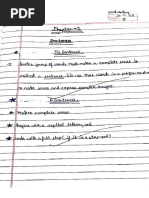 Chapter-1
Sentence
The Sentence
A group of words that makes a complete sense is
called a sentence. We use these words in proper order
to make sense and express complete thought.
A Sentence:-
★ Makes complete sense.
★ Begins with a capital letter, and
★ ends with a full stop (if it is a